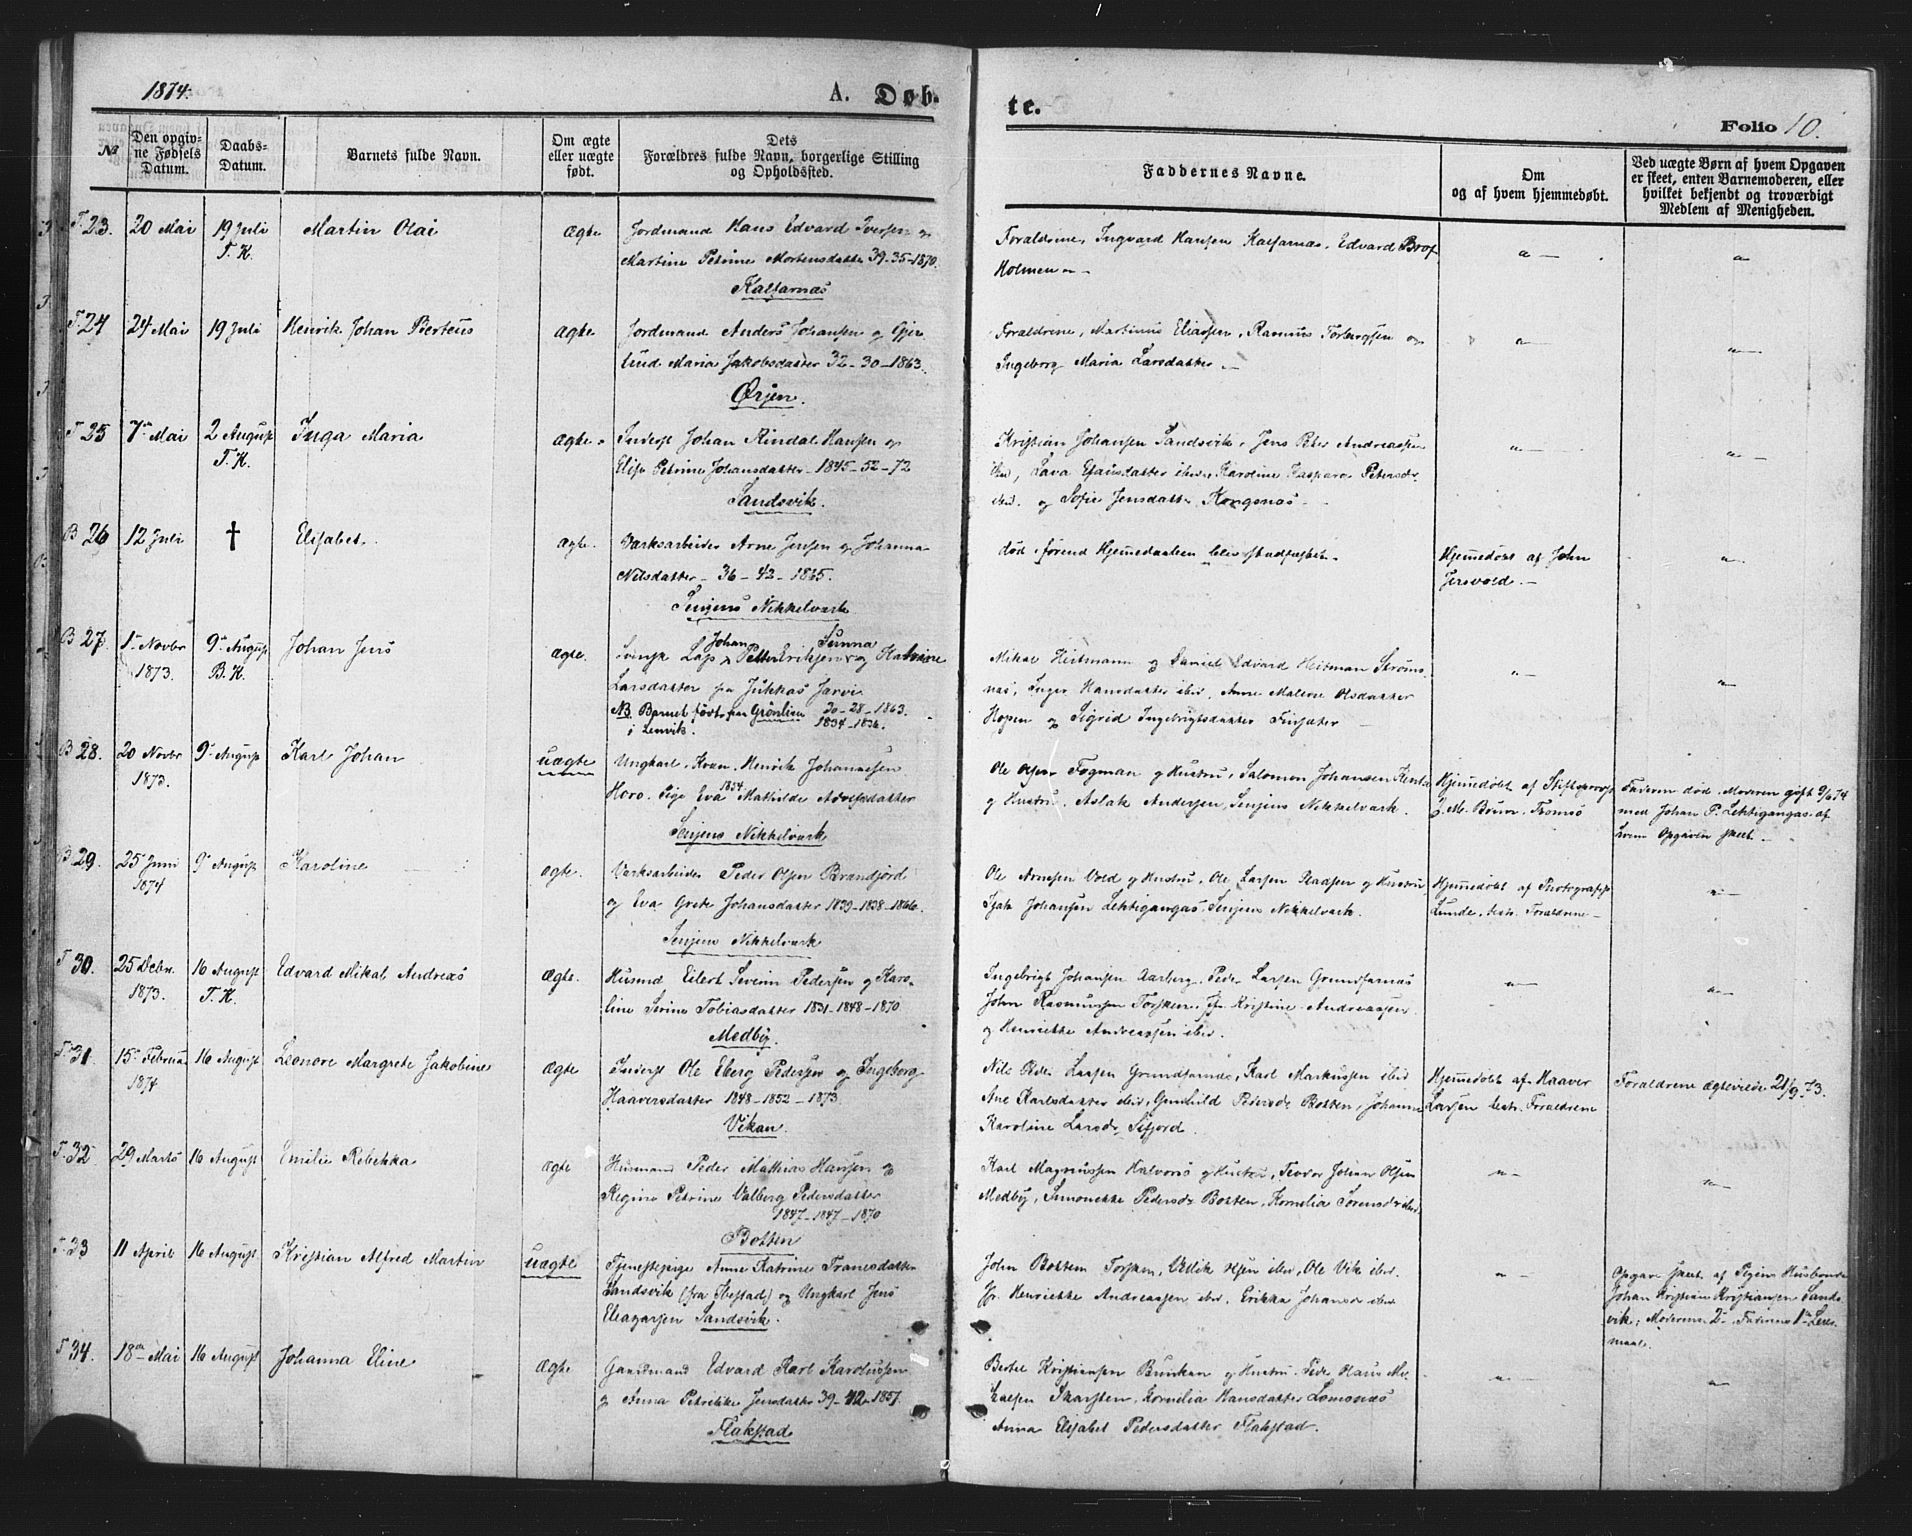 1874.
A. Døb-
te.
Folio 10.
№
Den opgiv-
ne Fødsels
Datum.
Daabs-
Datum.
Barnets fulde Navn.
Om ægte
eller uægte
født.
Dets
Forældres fulde Navn, borgerlige Stilling
og Opholdssted.
Faddernes Navne.
Om
og af hvem hjemmedøbt.
Ved uægte Børn af hvem Opgaven
er skeet, enten Barnemoderen, eller
hvilket bekjendt og troværdigt
Medlem af Menigheden.
T. 23. 20 Mai 19 Juli Martin Olai Ægte Jordmand Hans Edvard Iversen og
T. K. Martine Petrine Mortensdatter 39-35-1870.
Kalfarnæs
Forældrene, Ingvard Hansen Kalfarnæs, Edvard
Holmen
T. 24 24 Mai 19 Juli Henrik Johan Berteus ægte Jordmand Anders Johansen og Gjer
tud Maria Jakobsdatter 32-30-1863.
Ørjen.
Forældrene, Martinus Eliassen, Rasmus Torbergsen og
Ingeborg Maria Larsdatter.
T. 25 7de Mai 2 August Inga Maria ægte Inderst Johan Rindal Hansen og
T. K. Elise Petrine Johansdatter 1845-52-72
Sandsvik.
Kristian Johansen Sandsvik, Jens Peter Andreassen
ibd, Lava ibd, Karoline Kaspara Petersdr
ibid. og Sofie Jensdatter Kongsnæs.
B 26 12 Juli † Elisabet. ægte. Værksarbeider Arne Jensen og Johanna
Nilsdatter - 36-42-1865.
Senjens Nikkelværk
død førend Hjemmedaaben blev stadfæstet.
Hjemmedøbt af John
Jersvold.
B 27. 1ste Novbr 9de August Johan Jens ægte. Svensk Lap Johan Petter Eriksen og Sunna Katrine
1873. B. K. Larsdatter fra Jukkas Jarvi
NB Barnet født paa Grönlien 30-28-1863.
i Lenvik. 1834-1836.
Mikal Heitmann og Daniel Edvard Heitman Strøms
næs, Inger Hansdatter ibd, Anne Malene Olsdatter
Hopen og Sigrid Ingebrigtsdatter Finsæter
B 28. 20 Novbr 9de August Karl Johan uægte Ungkarl, Kvæn, Henrik Johannesen
1873. Horo. Pige Eva Mathilde Adolfsdatter
1834
Senjens Nikkelværk
Ole Olsen Fogman og Hustru, Salomon Johansen
og Hustru, Aslak Andersen, Senjens Nikkelværk.
Hjemmedøbt af Stiftsprovst
J. M. Bruun, Tromsö
Faderen død. Moderen gift 9/6 74
med Johan P. Lehtigangas, af
hvem Opgaven skeet.
B 29. 25 Juni 9de August Karoline ægte. Værksarbeider Peder Olsen Brandfjord
1874 og Eva Grete Johansdatter 1839-1838-1866.
Senjens Nikkelværk
Ole Arnesen Vold og Hustru, Ole Larsen Aasen og Hustru
Isak Johansen Lehtigangas, Senjens Nikkelværk.
Hjemmedøbt af Photograph
Lunde, bestr. Forældrene
T 30. 25 Decbr. 16 August Edvard Mikal Andreas ægte. Husmd Eilert Severin Pedersen og Karo-
1873. T. K. line Serine Tobiasdatter 1831-1848-1870
Medby.
Ingebrigt Johansen Aarberg, Peder Larsen Grundfarnæs
John Rasmussen Torsken, Jfr. Kristine Andreassen
og Henriette Andreassen ibd.
T. 31. 15de Februar 16 August Leonore Margrete Jakobine ægte Inderst Ole Eberg Pedersen og Ingeborg
1874 Haaversdatter 1848-1852-1873.
Vikan.
Nils Peder Larsen Grundfarnæs, Karl Markussen ibd
Ane Karlsdatter ibd, Gunhild Pedersdr Botten, Johanne
Karoline Larsdr Sifjord.
Hjemmedøbt af Haaver
Larsen bestr. Forældrene
Forældrene ægteviede 21/9 73.
T. 32 29 Marts 16 August Emilie Rebekka ægte Husmand Peder Mathias Hansen og
Regine Petrine Valberg Pedersdatter
1847-1847-1870
Botten
Karl Magnussen Halvors og Hustru, Teodor Johan Olsen
Medby, Simonekke Pedersdr Botten, Kornelia Sørensdr ibd
T. 33 11 April 16 August Kristian Alfred Martin uægte Tjenestepige Anne Katrine Transdatter
Sandsvik (fra Ibestad) og Ungkarl Jens
Eleazarsen Sandsvik.
John Botten Torsken, Vedik Olsen ibd, Ole Vik ibd.
Jfr. Henriette Andreassen ibd. Erikka Johansdr ibd
Opgave skeet af Pigens Husbonde
Johan Kristian Kristiansen Sands
vik, Moderens 2de Faderens 1ste Leier
maal.
T. 34. 18de Mai 16 August Johanna Eline ægte Gaardmand Edvard Karl Karolussen
og Anna Petrikke Jensdatter 39-42-1857.
Flakstad
Bertel Kristiansen og Hustru, Peder Hans
Larsen Skarsten, Kornelia Hansdatter Lomonæs
Anna Elisabet Pedersdatter Flakstad.